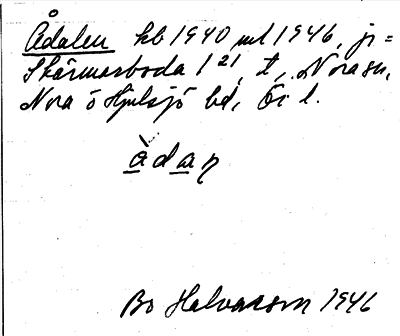 Ådalen hb 1940 ml 1946, ji =
Skärmarboda 1²¹, t, Nora sn,
Nora o Hjulsjö bd, Ör l.
àdaɲ
Bo Halvarson 1946